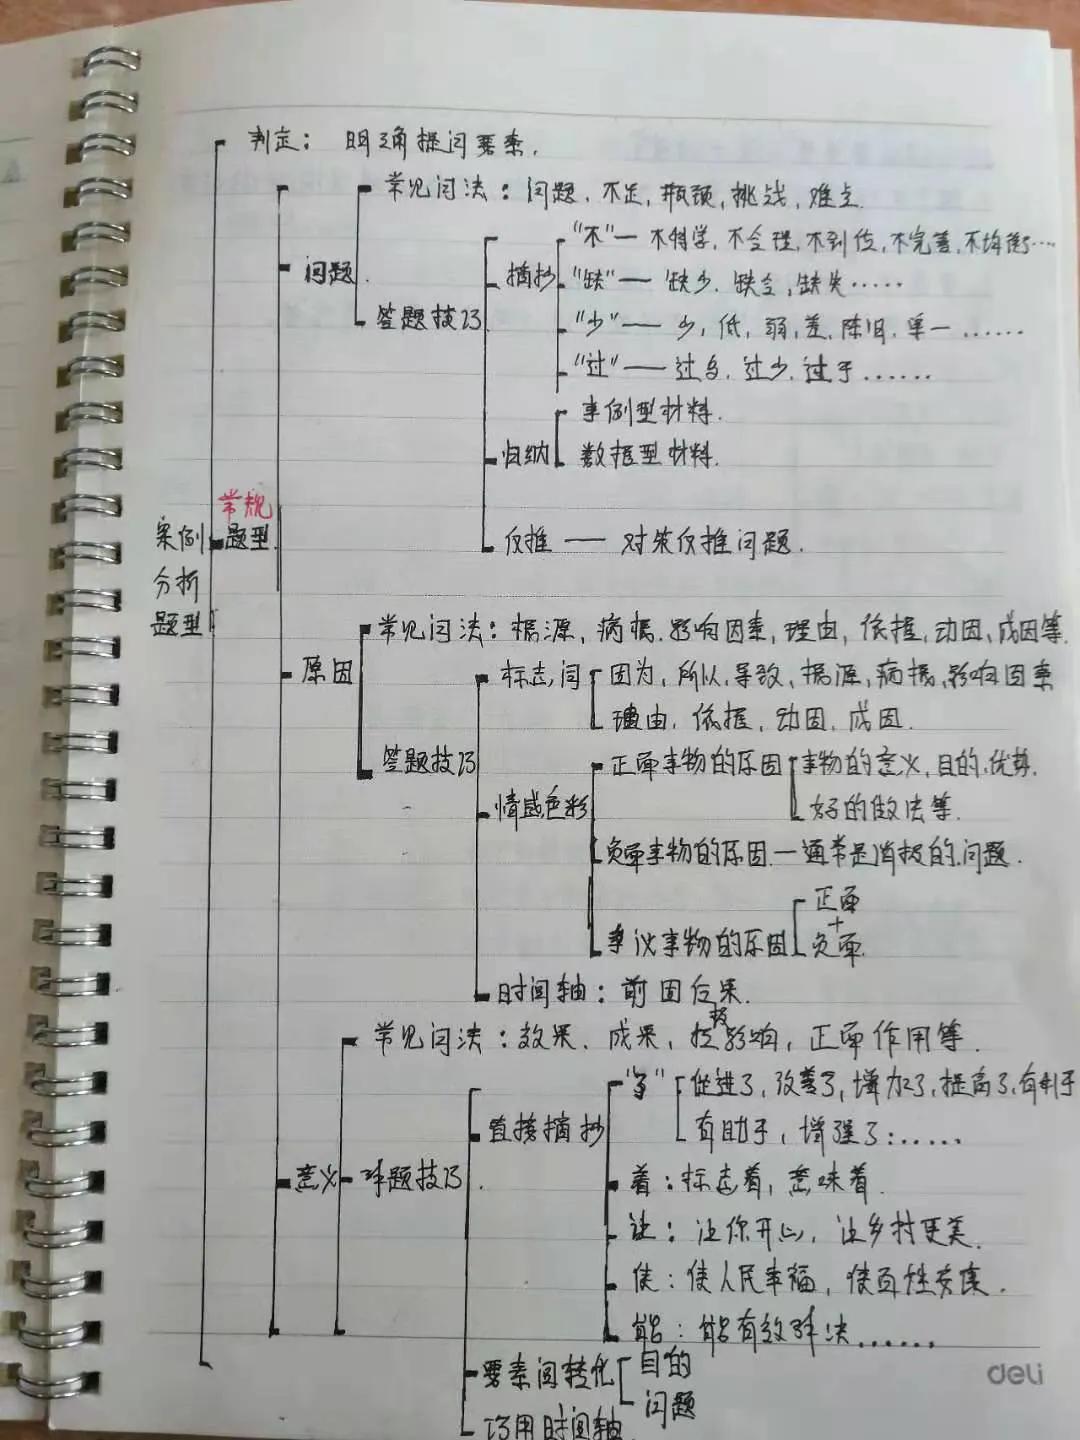 判定：明确提问要素.
常见问法：问题、不足,瓶颈,挑战,难点.
"不"— 不科学,不合理,不到位,不完善,不均衡….
问题.
摘抄
"缺"— 缺少.缺乏,缺失……
答题技巧
"少"—— 少,低,弱,差.陈旧.单一……
"过"—— 过多.过少.过于……
事例型材料.
归纳
数据型材料.
常规
案例
题型
反推 — 对策反推问题.
分析
题型
常见问法：根源,病根.影响因素,理由,依据,动因,成因等.
原因
标志词
因为,所以,导致,根源,病根,影响因素
理由.依据,动因.成因.
答题技巧
正面事物的原因
事物的意义,目的.优势.
情感色彩
好的做法等.
负面事物的原因.—通常是消极的.问题.
正面
+
争议事物的原因
负面.
时间轴：前因后果.
常见问法：效果、成果,积极影响,正面作用等.
"了"
促进了,改善了,增加了,提高了,有利于
直接摘抄
有助于,增强了:……
意义
解题技巧.
着：标志着,意味着.
让：让你开心,让乡村更美.
使：使人民幸福,使百姓安康.
能：能有效解决……
要素间转化
目的
问题
巧用时间轴.
deli